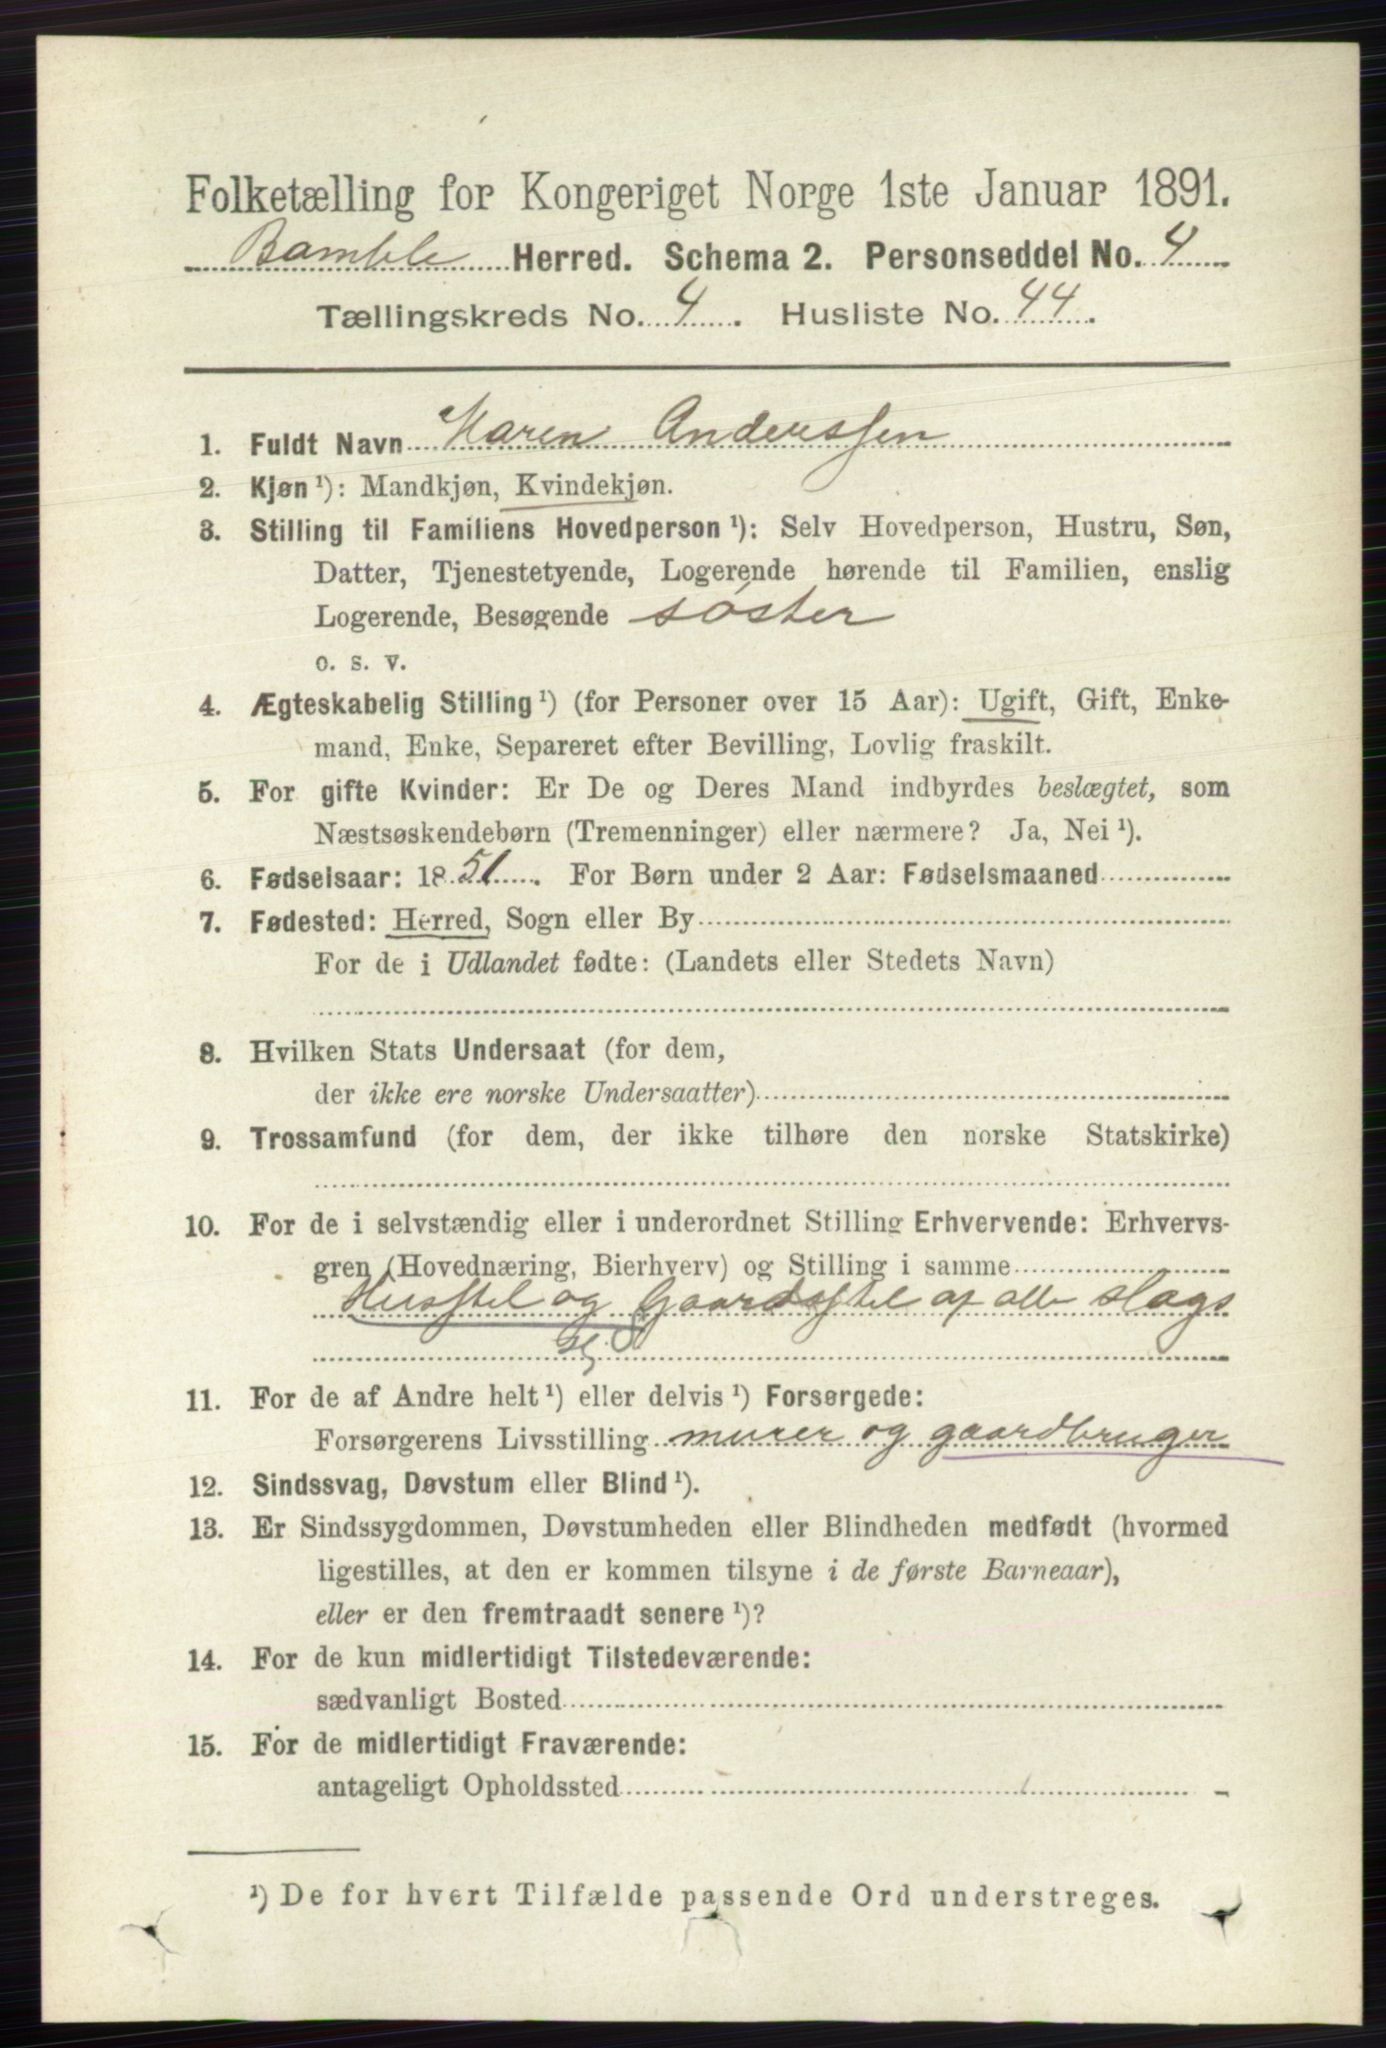 Folketælling for Kongeriget Norge 1ste Januar 1891.
Bamble Herred. Schema 2. Personseddel No. 4
Tællingskreds No. 4. Husliste No. 44.
1. Fuldt Navn Maren Anderssen
2. Kjøn ¹): Mandkjøn, Kvindekjøn.
3. Stilling til Familiens Hovedperson ¹): Selv Hovedperson, Hustru, Søn,
Datter, Tjenestetyende, Logerende hørende til Familien, enslig
Logerende, Besøgende søster
o. s. v.
4. Ægteskabelig Stilling ¹) (for Personer over 15 Aar): Ugift, Gift, Enke-
mand, Enke, Separeret efter Bevilling, Lovlig fraskilt.
5. For gifte Kvinder: Er De og Deres Mand indbyrdes beslægtet, som
Næstsøskendebørn (Tremenninger) eller nærmere? Ja, Nei ¹).
6. Fødselsaar: 1851. For Børn under 2 Aar: Fødselsmaaned
7. Fødested: Herred, Sogn eller By
For de i Udlandet fødte: (Landets eller Stedets Navn)
8. Hvilken Stats Undersaat (for dem,
der ikke ere norske Undersaatter)
9. Trossamfund (for dem, der ikke tilhøre den norske Statskirke)
10. For de i selvstændig eller i underordnet Stilling Erhvervende: Erhvervs-
gren (Hovednæring, Bierhverv) og Stilling i samme
Husstel og Gaardsstel af alle slags
11. For de af Andre helt ¹) eller delvis ¹) Forsørgede:
Forsørgerens Livsstilling murer og gaardbruger
12. Sindssvag, Døvstum eller Blind ¹).
13. Er Sindssygdommen, Døvstumheden eller Blindheden medfødt (hvormed
ligestilles, at den er kommen tilsyne i de første Barneaar),
eller er den fremtraadt senere ¹)?
14. For de kun midlertidigt Tilstedeværende:
sædvanligt Bosted
15. For de midlertidigt Fraværende:
antageligt Opholdssted
¹) De for hvert Tilfælde passende Ord understreges.